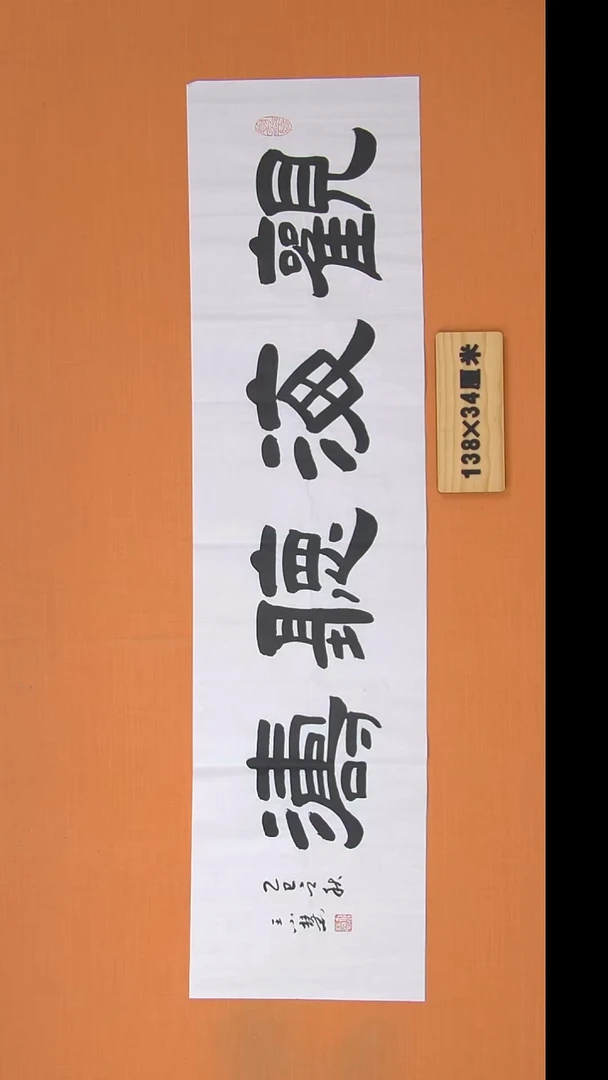 觀海聽濤
乙巳之秋
138×34厘米